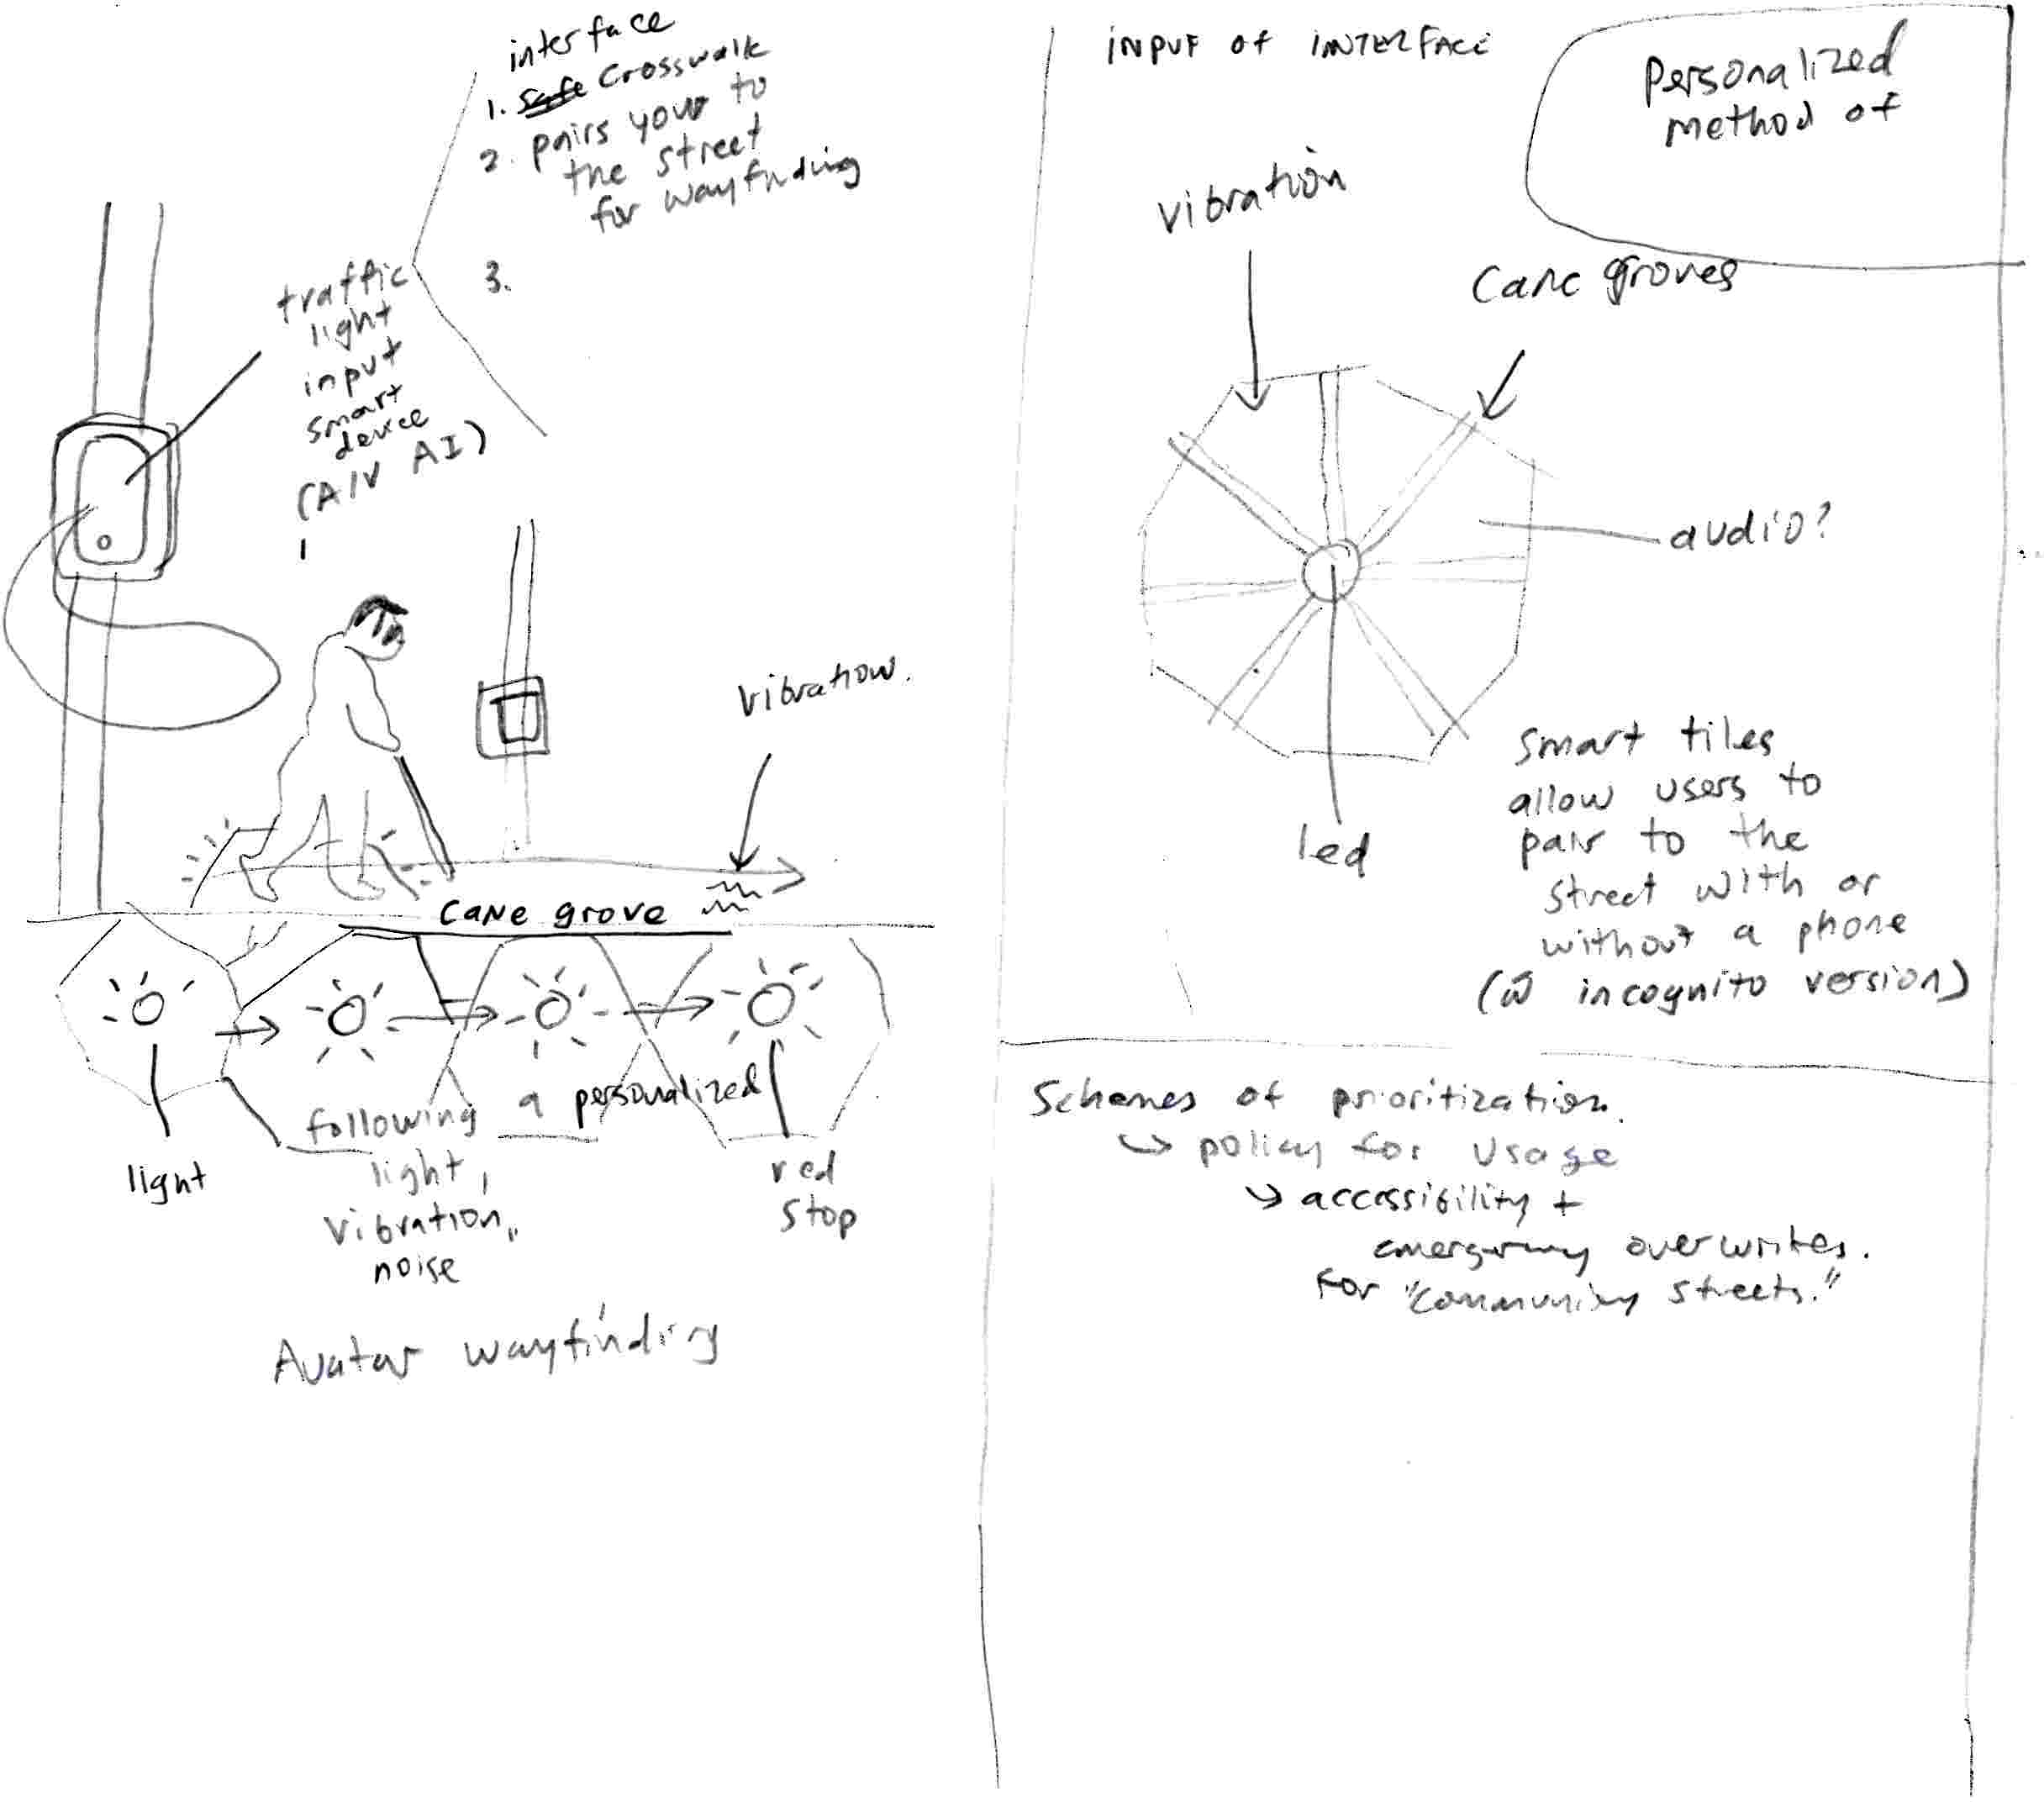 interface
1. Safe Crosswalk
2. pairs your to
the street
for wayfinding
3.
traffic
light
input
smart
device
(A/V AI)
vibration.
cane grove
following a personalized
light,
vibration,
noise
light
red
stop
Avatar wayfinding
INPUT OF INTERFACE
Personalized
method of
vibration
Cane groves
audio?
led
Smart tiles
allow users to
pair to the
street with or
without a phone
(w incognito version)
Schemes of prioritization.
↳ policy for usage
↳ accessibility +
emergency overwrites.
for "community streets."